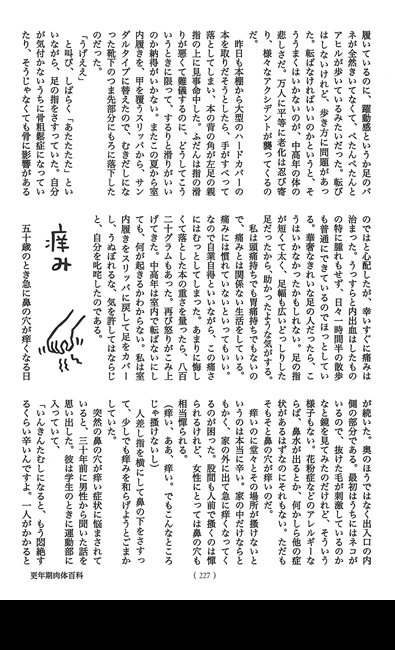 履いているのに、躍動感というか足のバ
ネが全然きいてなくて、ぺたんぺたんと
アヒルが歩いているみたいだった。転び
はしないけれど、歩き方に問題があっ
た。転ばなければいいのかというと、そ
ううまくはいかないのが、中高年の体の
悲しさだ。万人に平等に老化は忍び寄
り、様々なアクシデントが襲ってくるの
だ。
昨日も本棚から大型のハードカバーの
本を取りだそうとしたら、手がすべって
落としてしまい、本の背の角が左足の親
指の上に見事命中した。ふだんは指の滑
りが悪くて難儀するのに、どうしてこう
いうときに限って、するりと滑りがいい
のか納得がいかない。またこの夏から室
内履きを、甲を覆うスリッパから、サン
ダルタイプに替えたので、むきだしにな
った靴下のつま先部分にもろに落下した
のだった。
「うげええ」
と叫び、しばらく「あたたたた」とい
いながら、足の指をさすっていた。自分
が気付かないうちに骨粗鬆症になってい
たり、そうじゃなくても骨に影響がある
のではと心配したが、幸いすぐに痛みは
治まった。うっすらと内出血はしたもの
の特に腫れもせず、日々一時間半の散歩
も普通にできているのでほっとしてい
る。華奢なきれいな足の人だったら、こ
うはいかなかったかもしれない。足の指
が短くて太く、足幅も広いどっしりした
足だったから、助かったような気がする。
私は頭痛持ちでも胃痛持ちでもないの
で、痛みとは関係ない生活をしている。
痛みには慣れていないといってもいい。
なので自業自得といいながら、この痛さ
にはむっとしてしまった。あまりに悔し
くて落とした本の重さを量ったら、八百
二十グラムもあった。再び怒りがこみ上
げてきた。中高年は室内で転ばないにし
ても、何が起きるかわからない。私は室
内履きをスリッパに戻して足をカバー
し、うぬぼれるな、気を許してはならじ
と、自分を叱咤したのである。
痒み
五十歳のとき急に鼻の穴が痒くなる日
が続いた。奥のほうではなく出入口の内
側の部分である。最初はうちにはネコが
いるので、抜けた毛が刺激しているのか
なと鏡を見てみたのだけれど、そういう
様子もない。花粉症などのアレルギーな
らば、鼻水が出るとか、何かしら他の症
状があるはずなのにそれもない。ただも
そもそと鼻の穴が痒いのだ。
痒いのに堂々とその場所が搔けないと
いうのは本当に辛い。家の中だけならと
もかく、家の外に出て急に痒くなってく
るのが困った。股間も人前で搔くのは憚
られるけれど、女性にとっては鼻の穴も
相当憚られる。
（痒い、ああ、痒い。でもこんなところ
じゃ搔けないし）
人差し指を横にして鼻の下をさすっ
て、少しでも痒みを和らげようとごまか
していた。
突然の鼻の穴が痒い症状に悩まされて
いると、三十年前に男性から聞いた話を
思い出した。彼は学生のときに運動部に
入っていて、
「いんきんたむしになると、もう悶絶す
るくらい辛いんですよ。一人がかかると
(227)
更年期肉体百科